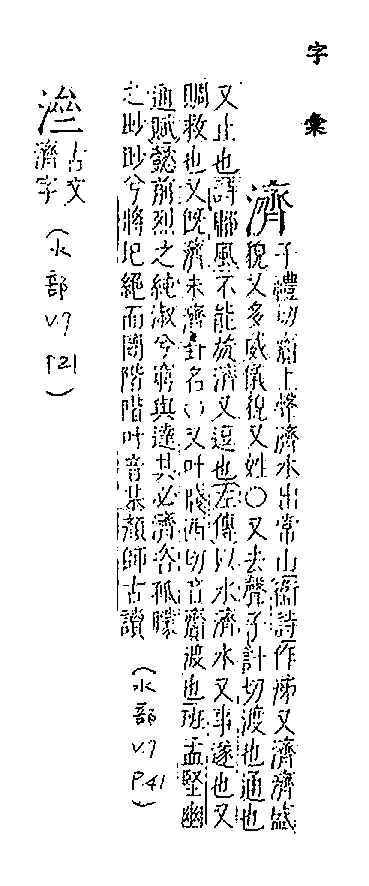 字彙
濟
子禮切齎上聲濟水出常山衞詩作泲又濟濟盛
貌又多威儀貌又姓○又去聲子計切渡也通也
又止也詩鄘風不能旋濟又逗也左傳以水濟水又事遂也又
賙救也又旣濟未濟卦名○又叶牋西切音齎渡也班孟堅幽
通賦懿前烈之純淑兮窮與達其必濟咨孤矇
之眇眇兮將圮絕而罔階階叶音基顏師古讀
(水部 V.7 P.41)
古文
濟字
(水部 V.7 P21)